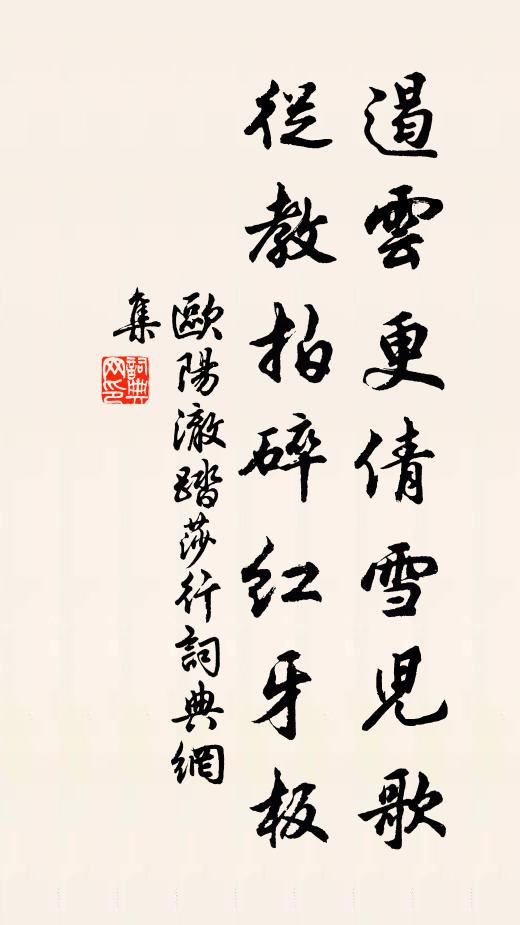 遏雲更倩雪兒歌
從教拍碎紅牙板
歐陽澈踏莎行詞典網
集
詞典
网印